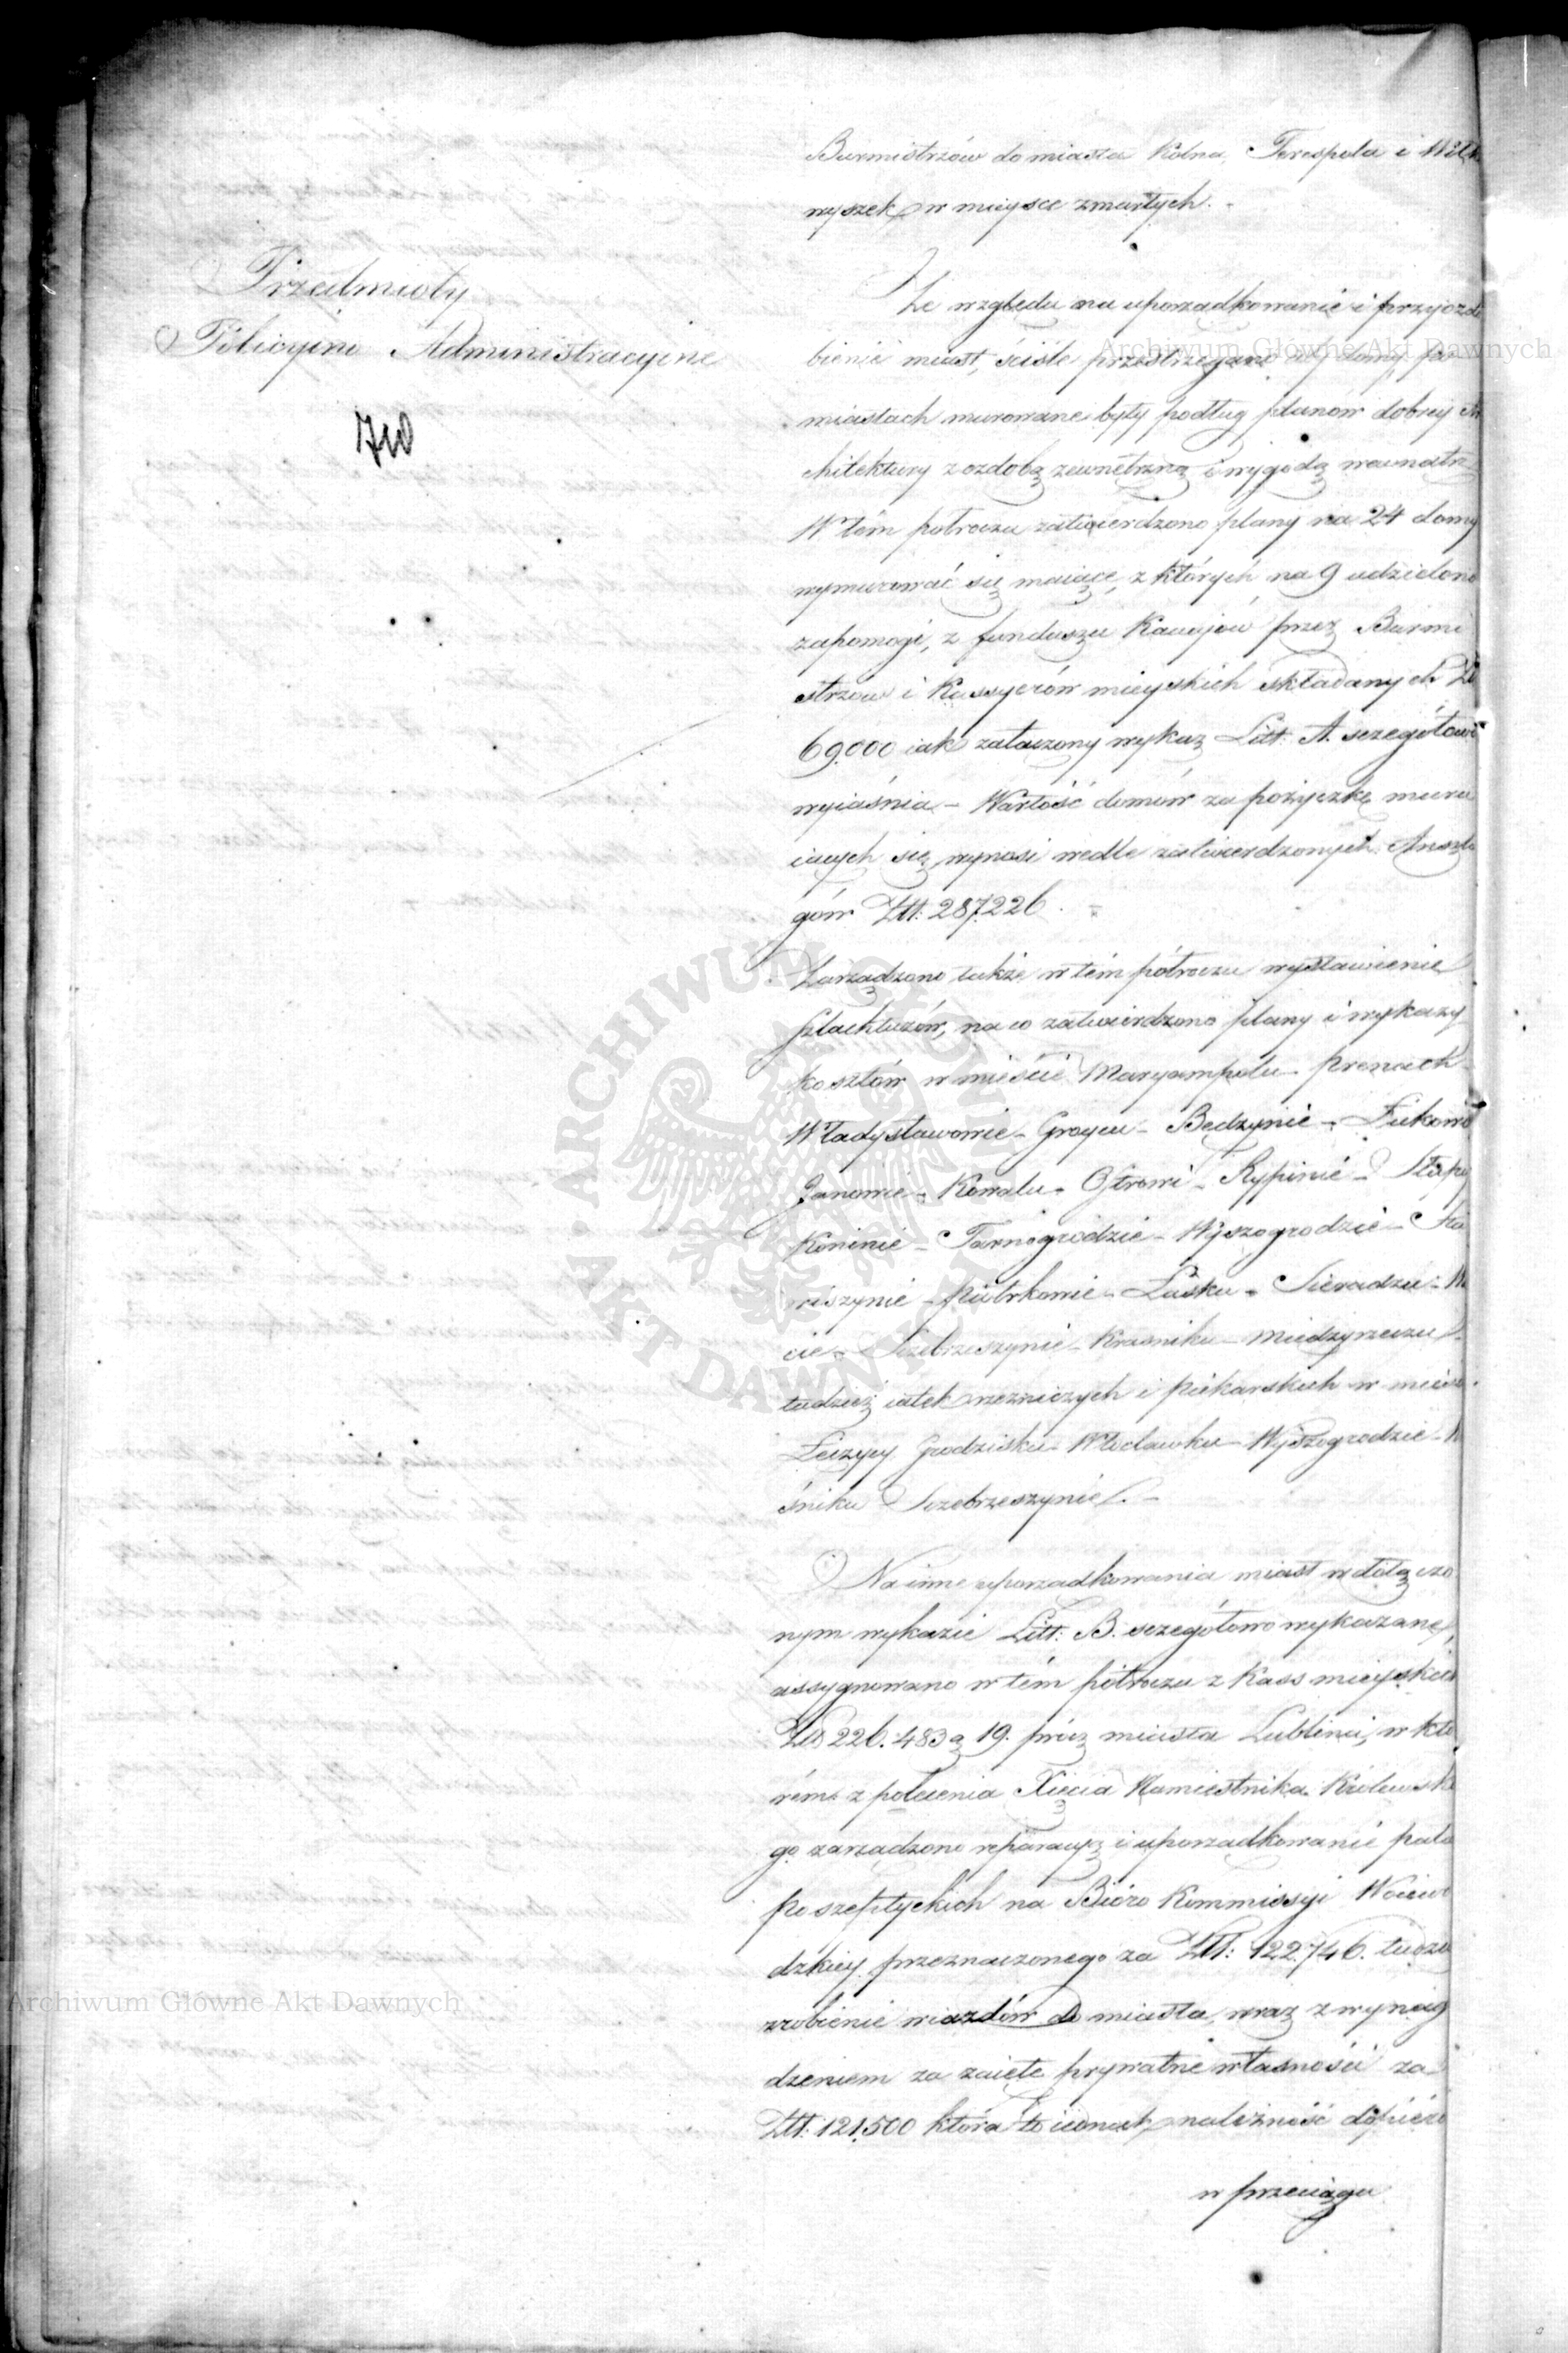 Burmistrzów do miasta Kolna, Terespola i Wiłk
wyszek w mieysce zmarłych.
Przedmioty
Policyino Administracyine
710
Ze względu na uporządkowanie i przyozdo
bienie miast, ściśle przestrzegano aby domy po
miastach murowane były podług planów dobrey Ar
chitektury z ozdobą zewnętrzną i wygodą wewnątrz
W tém półroczu zatwierdzono plany na 24 domy
wymurować się maiące, z których na 9 udzielono
zapomogi, z funduszu Kaucyów przez Burmi
strzów i Kassyerów mieyskich składanych Zł
69.000 iak załączony wykaz Litt: A. szczegółowi
wyiaśnia – Wartość domów za pożyczkę muru
iących się wynosi wedle zatwierdzonych Anszla
gów Złł: 287.226.
Zarządzono także w tém półroczu wystawienie
szlachtuzów, na co zatwierdzono plany i wykazy
kosztów w mieście Maryampolu – Prenach
Władysławowie – Groycu – Będzynie – Łukowi
Janowie – Kowalu – Ostrowi – Rypinie – Słupcy
Koninie – Tarnogrodzie – Wyszogrodzie – Sta
wiszynie – Piotrkowie – Łasku – Sieradzu –
cie – Szczebrzeszynie – Kraśniku – Miedzyrzeczu
tudzież iatek rzezniczych i piekarskich w mieście
Łęczycy Grodzisku – Włocławku – Wyszogrodzie –
śniku Szczebrzeszynie. –
Na inne uporządkowania miast w dołączo
nym wykazie Litt: B. szczegółowo wykazane,
assygnowano w tém półroczu z Kass mieyskich
Zł 226.483 g 19. prócz miasta Lublina, w któ
rém z polecenia Xięcia Namiestnika Królewskie
go zarządzono reparacyą i uporządkowanie pała
po szeptyckich na Bióro Kommissyi Woiewó
dzkiey przeznaczonego za Złł: 122.746. tudzie
zrobienie wiazdów do miasta, wraz z wynag
dzeniem za zaięte prywatne własności za
Złł: 121.500 która to iednak należność dopiéro
w przeciągu
Archiwum Główne Akt Dawnych
Archiwum Główne Akt Dawnych
ARCHIWUM GŁÓWNE AKT DAWNYCH